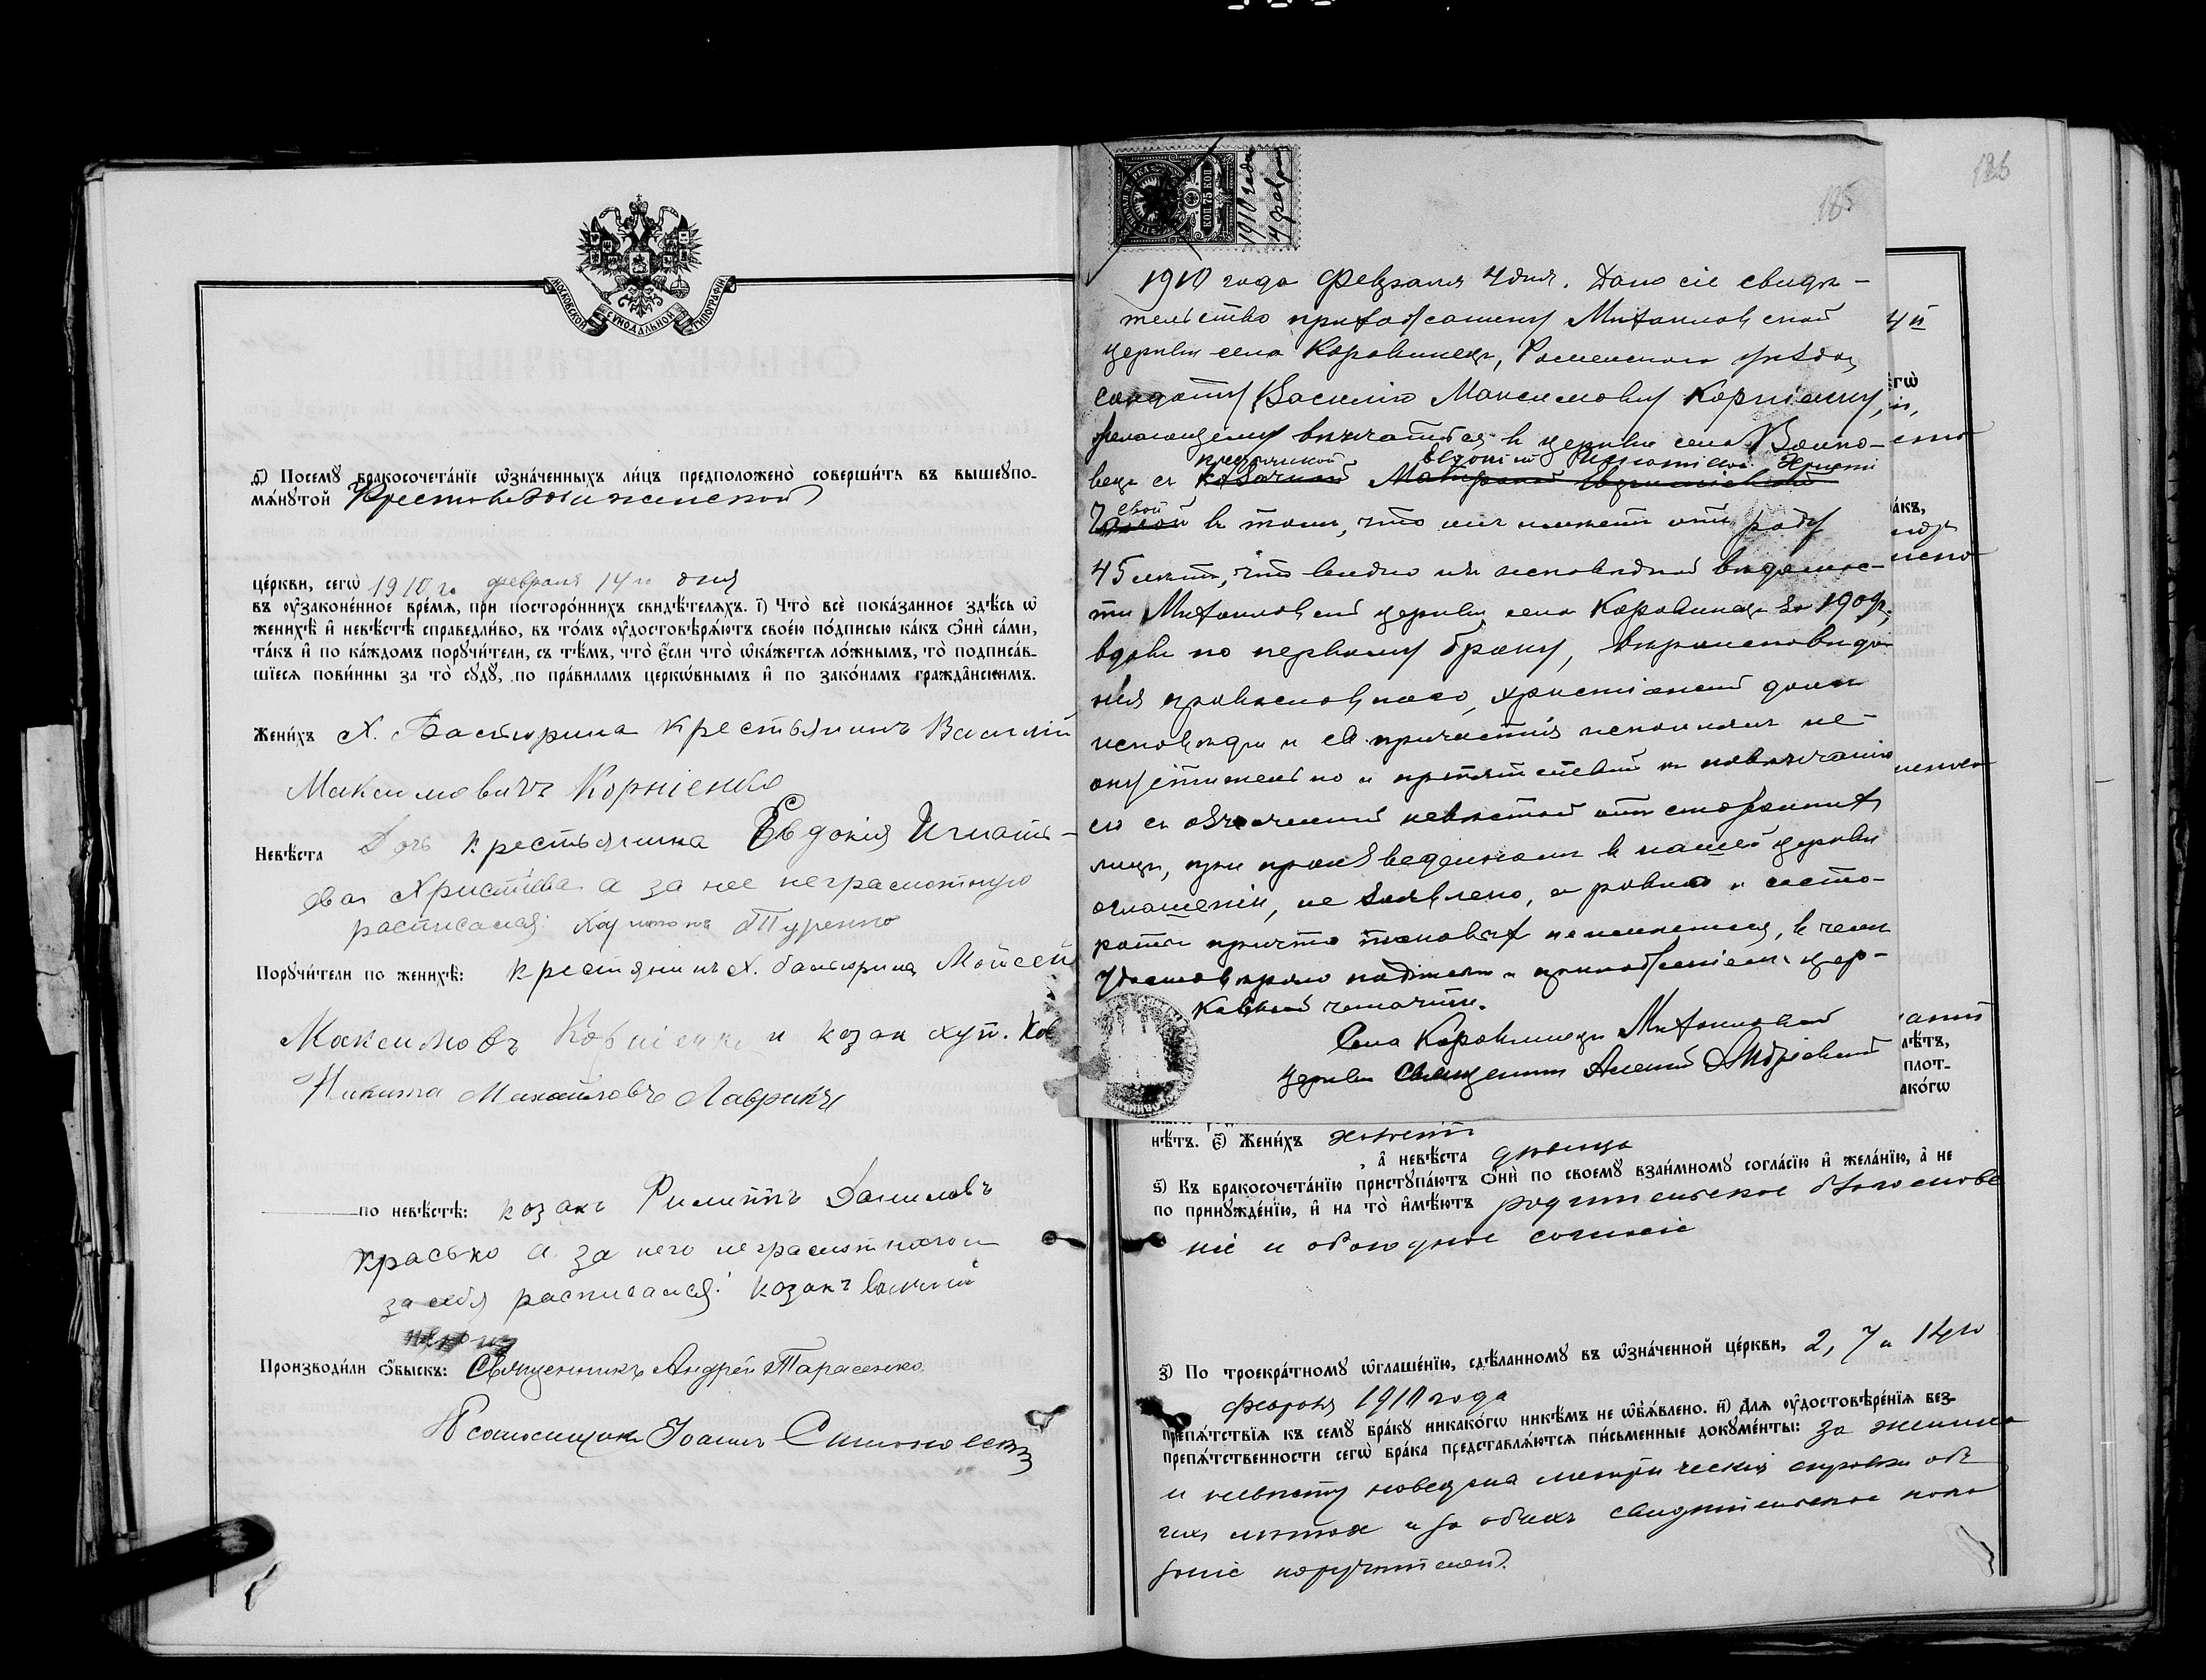 МОСКОВСКОЙ СѴНОДАЛЬНОЙ ТИПОГРАФІИ
Посемꙋ бракосочетанїе ѡзначенныхъ лицъ предположено совершить въ вышеꙋпо-
мѧнꙋтой Крестовоздвиженской
церкви, сегѡ 1910 го февраля 14 го дня
въ ᲂуЗаконенное время, при постороннихъ свидѣтеляхъ. і) Что все показанное здѣсь ѡ
женихѣ и невѣстѣ справедливо, въ томъ ᲂудостовѣряютъ своею подписью какъ ѡни сами,
такъ и по каждомъ порꙋчители, съ тѣмъ, что если что ѡкажется ложнымъ, то подписав-
шїеся повинны за то сꙋдꙋ, по правиламъ церковнымъ и по законамъ гражданскимъ.
Женихъ Х. Бастюрина крестьянинъ Василій
Максимовичъ Корніенко
Невѣста Дочь крестьянина Евдокія Игнать-
ева Христіева а за нее неграмотную
росписался: Харитонъ Туренко
Порꙋчители по женихѣ: крестянинъ Х. бастюрина Мойсей
Максимовъ Корніенко и козак хут. Ков
Никита Михайловъ Лаврикъ
по невѣстѣ: козакъ Филиппъ Даниловъ
Красько а за него неграмотного и
за себя росписался: козакъ Василій
Производили ѡбыскъ: Священникъ Андрей Тарасенко
Псаломщикъ Іоаннъ Симоновскій
КОП 75 КОП
1910 года
4 февраля
185
1910 года Февраля 4 дня. Дано сіе свидѣ-
тельство прихожанину Михайловской
церкви села Коровинецъ, Роменского уѣзда,
солдату Василію Максимовичу Корніенку,
желающему вѣнчаться въ церкви села Волко-
вецъ съ козачкой крестьянкой Евдокіей Игнатіевой Христі
евой въ томъ, что онъ имѣетъ отъ роду
45 лѣтъ, что видно изъ исповѣдной вѣдомос-
ти Михайловской церкви села Коровинецъ за 1909 г.,
вдовъ по первому браку, вѣроисповѣда-
нія православного, христіанскій долгъ
исповѣди и св. причастія исполнялъ не-
опустительно и препятствій къ повѣнчанію
его съ означенной невѣстой отъ стороннихъ
лицъ, при произведенномъ въ нашей церкви
оглашеніи, не заявлено, а равно и со сто-
роны причта таковыхъ не имѣется, въ чемъ
удостовѣряю подписью и приложеніемъ цер-
ковной печати.
Села Коровинецъ Михайловской
церкви Священникъ Алексій
186
нѣтъ. є) Женихъ холостъ
, а невѣста дѣвица
ѕ) Къ бракосочетанїю пристꙋпаютъ ѡни по своемꙋ взаимномꙋ согласїю и желанїю, а не
по принꙋжденїю, и на то имѣютъ родительское благослове
ніе и обоюдное согласіе
з) По троекратномꙋ ѡглашенїю, сдѣланномꙋ въ ѡзначенной церкви, 2, 7 и 14 го
февраля 1910 года
препятствїя къ семꙋ бракꙋ никакогѡ никѣмъ не ѡбъявлено. и) Для ᲂудостовѣренїя без-
препятственности сегѡ брака представляются письменные докꙋменты: за жениха
и невѣсту наведена метрическія справки объ
ихъ лѣтахъ и за обоихъ свидѣтельское пока
заніе поручителей.